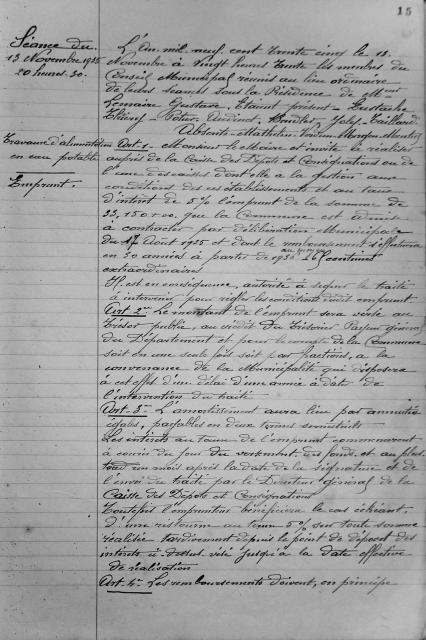 15
Séance du
13 Novembre 1935
20 heures 30.
L'An mil neuf cent trente cinq le 13
Novembre à vingt heures trente les membres du
Conseil Municipal réunis au lieu ordinaire
de leurs séances sous la Présidence de Mr
Lemaire Gustave. Etaient présent = Eustache
Absents =
Travaux d'alimentation
en eau potable
Emprunt.
Art 1. Monsieur le Maire est invité à réaliser
auprès de la Caisse des Dépôts et Consignations ou de
l'une des caisses dont elle a la gestion aux
conditions de ces établissements et au taux
d'intérêt de 5% l'emprunt de la somme de
que la Commune est admise
à contracter par délibération Municipale
du 17 Août 1935 et dont le remboursement s'effectuera
en 30 années à partir de 1936 centimes
extraordinaires
Il est en conséquence, autorisé à signer le traité
à intervenir pour régler les conditions dudit emprunt
Art 2. Le montant de l'emprunt sera versé au
Trésor public, au crédit du Trésorier Payeur général
du Département et pour le compte de la Commune
soit en une seule fois soit par fractions, à la
convenance de la Municipalité qui disposera
à cet effet d'un délai d'une année à date de
l'intervention du traité
Art. 3. L'amortissement aura lieu par annuités
égales, payables en deux termes semestriels
Les intérêts au taux de l'emprunt commenceront
à courir du jour du versement des fonds et au plus
tard un mois après la date de la signature et de
l'envoi du traité par le Directeur général de la
Caisse des Dépôts et Consignations
Toutefois l'emprunteur bénéficiera le cas échéant
d'une ristourne au taux 5% sur toute somme
réalisée tardivement depuis le point de départ des
intérêts ci-dessus visé jusqu'à la date effective
de réalisation
Art 4. Les remboursements doivent, en principe